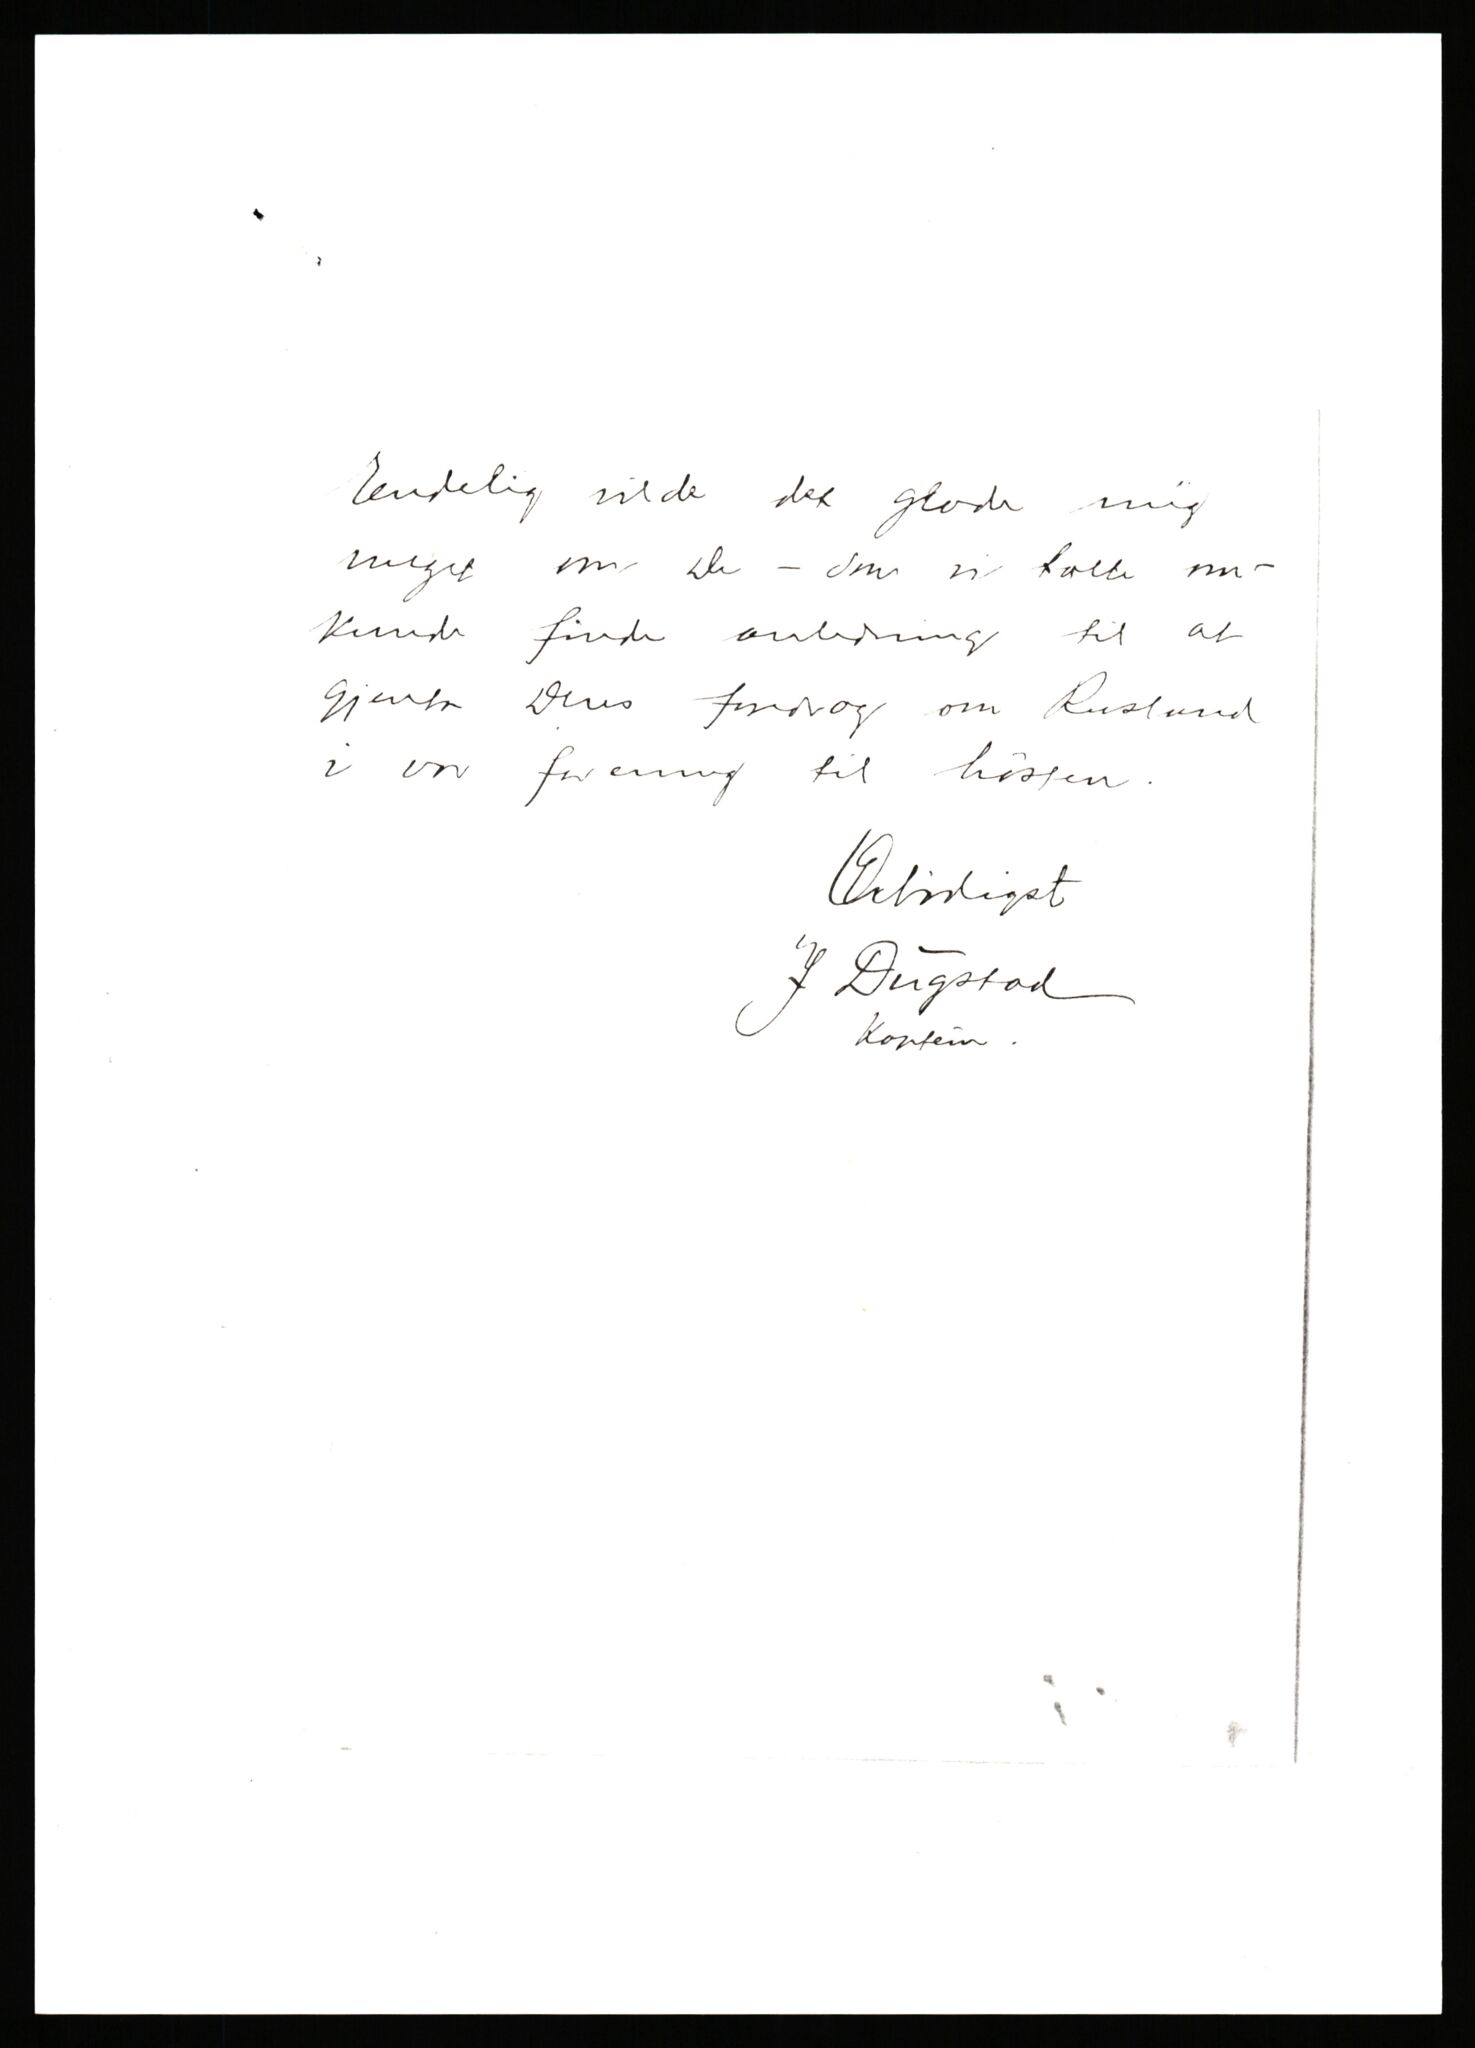 Endelig vilde det glæde mig
meget om De – som vi talte om –
kunde finde anledning til at
gjenta Deres foredrag om Rusland
i vor forening til høsten.
Ærbødigst
J Dugstad
Kaptein.